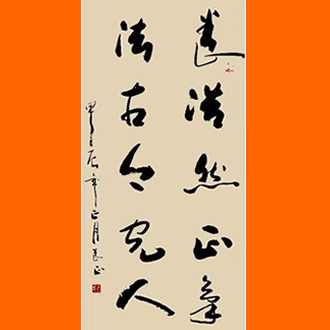 养浩然正氣
法古今完人
甲辰年正月長正